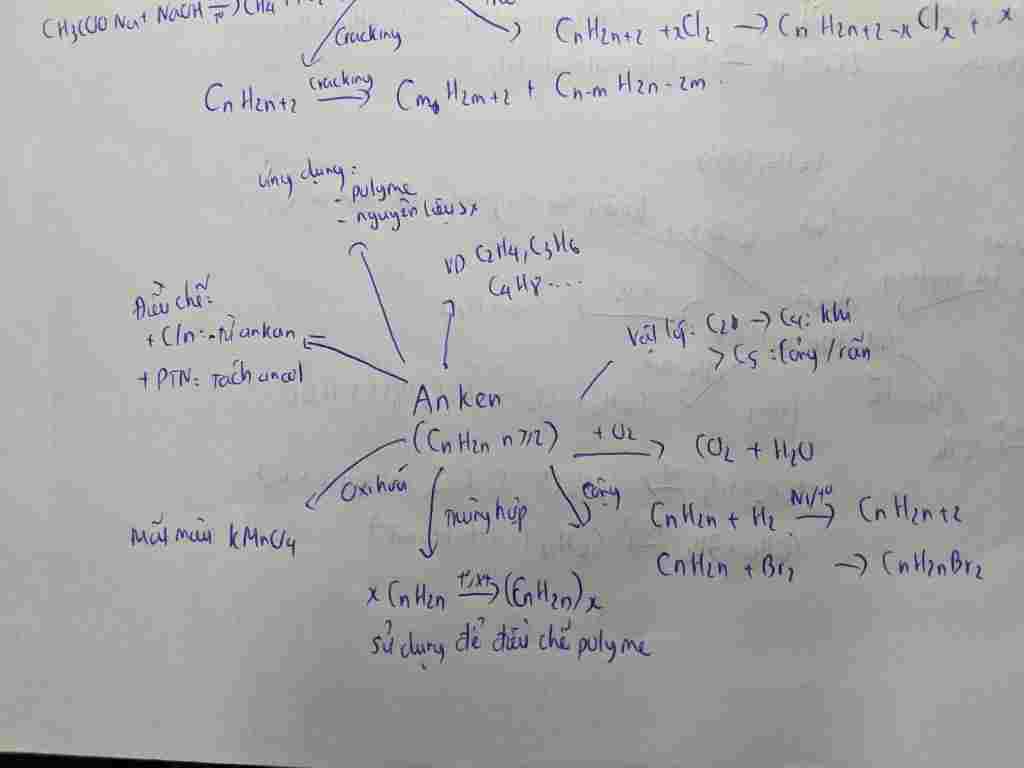 CH3COONa + NaOH → CH4
Cracking
CnH2n+2 + xCl2 → CnH2n+2-xClx + x
CnH2n+2 Cracking → CmH2m+2 + Cn-mH2n-2m
ứng dụng:
- polyme
- nguyên liệu sx
VD C2H4, C3H6
C4H8....
Điều chế:
+ CIn: từ ankan
+ PTN: tách ancol
Vật lý: C2 → C4: khí
> C5: lỏng/rắn
Anken
(CnH2n n≥2) + O2 → CO2 + H2O
Oxi hoá
Trùng hợp
Cộng
Mất màu KMnO4
CnH2n + H2 Ni/to → CnH2n+2
CnH2n + Br2 → CnH2nBr2
x CnH2n to,xt → (CnH2n)x
sử dụng để điều chế polyme